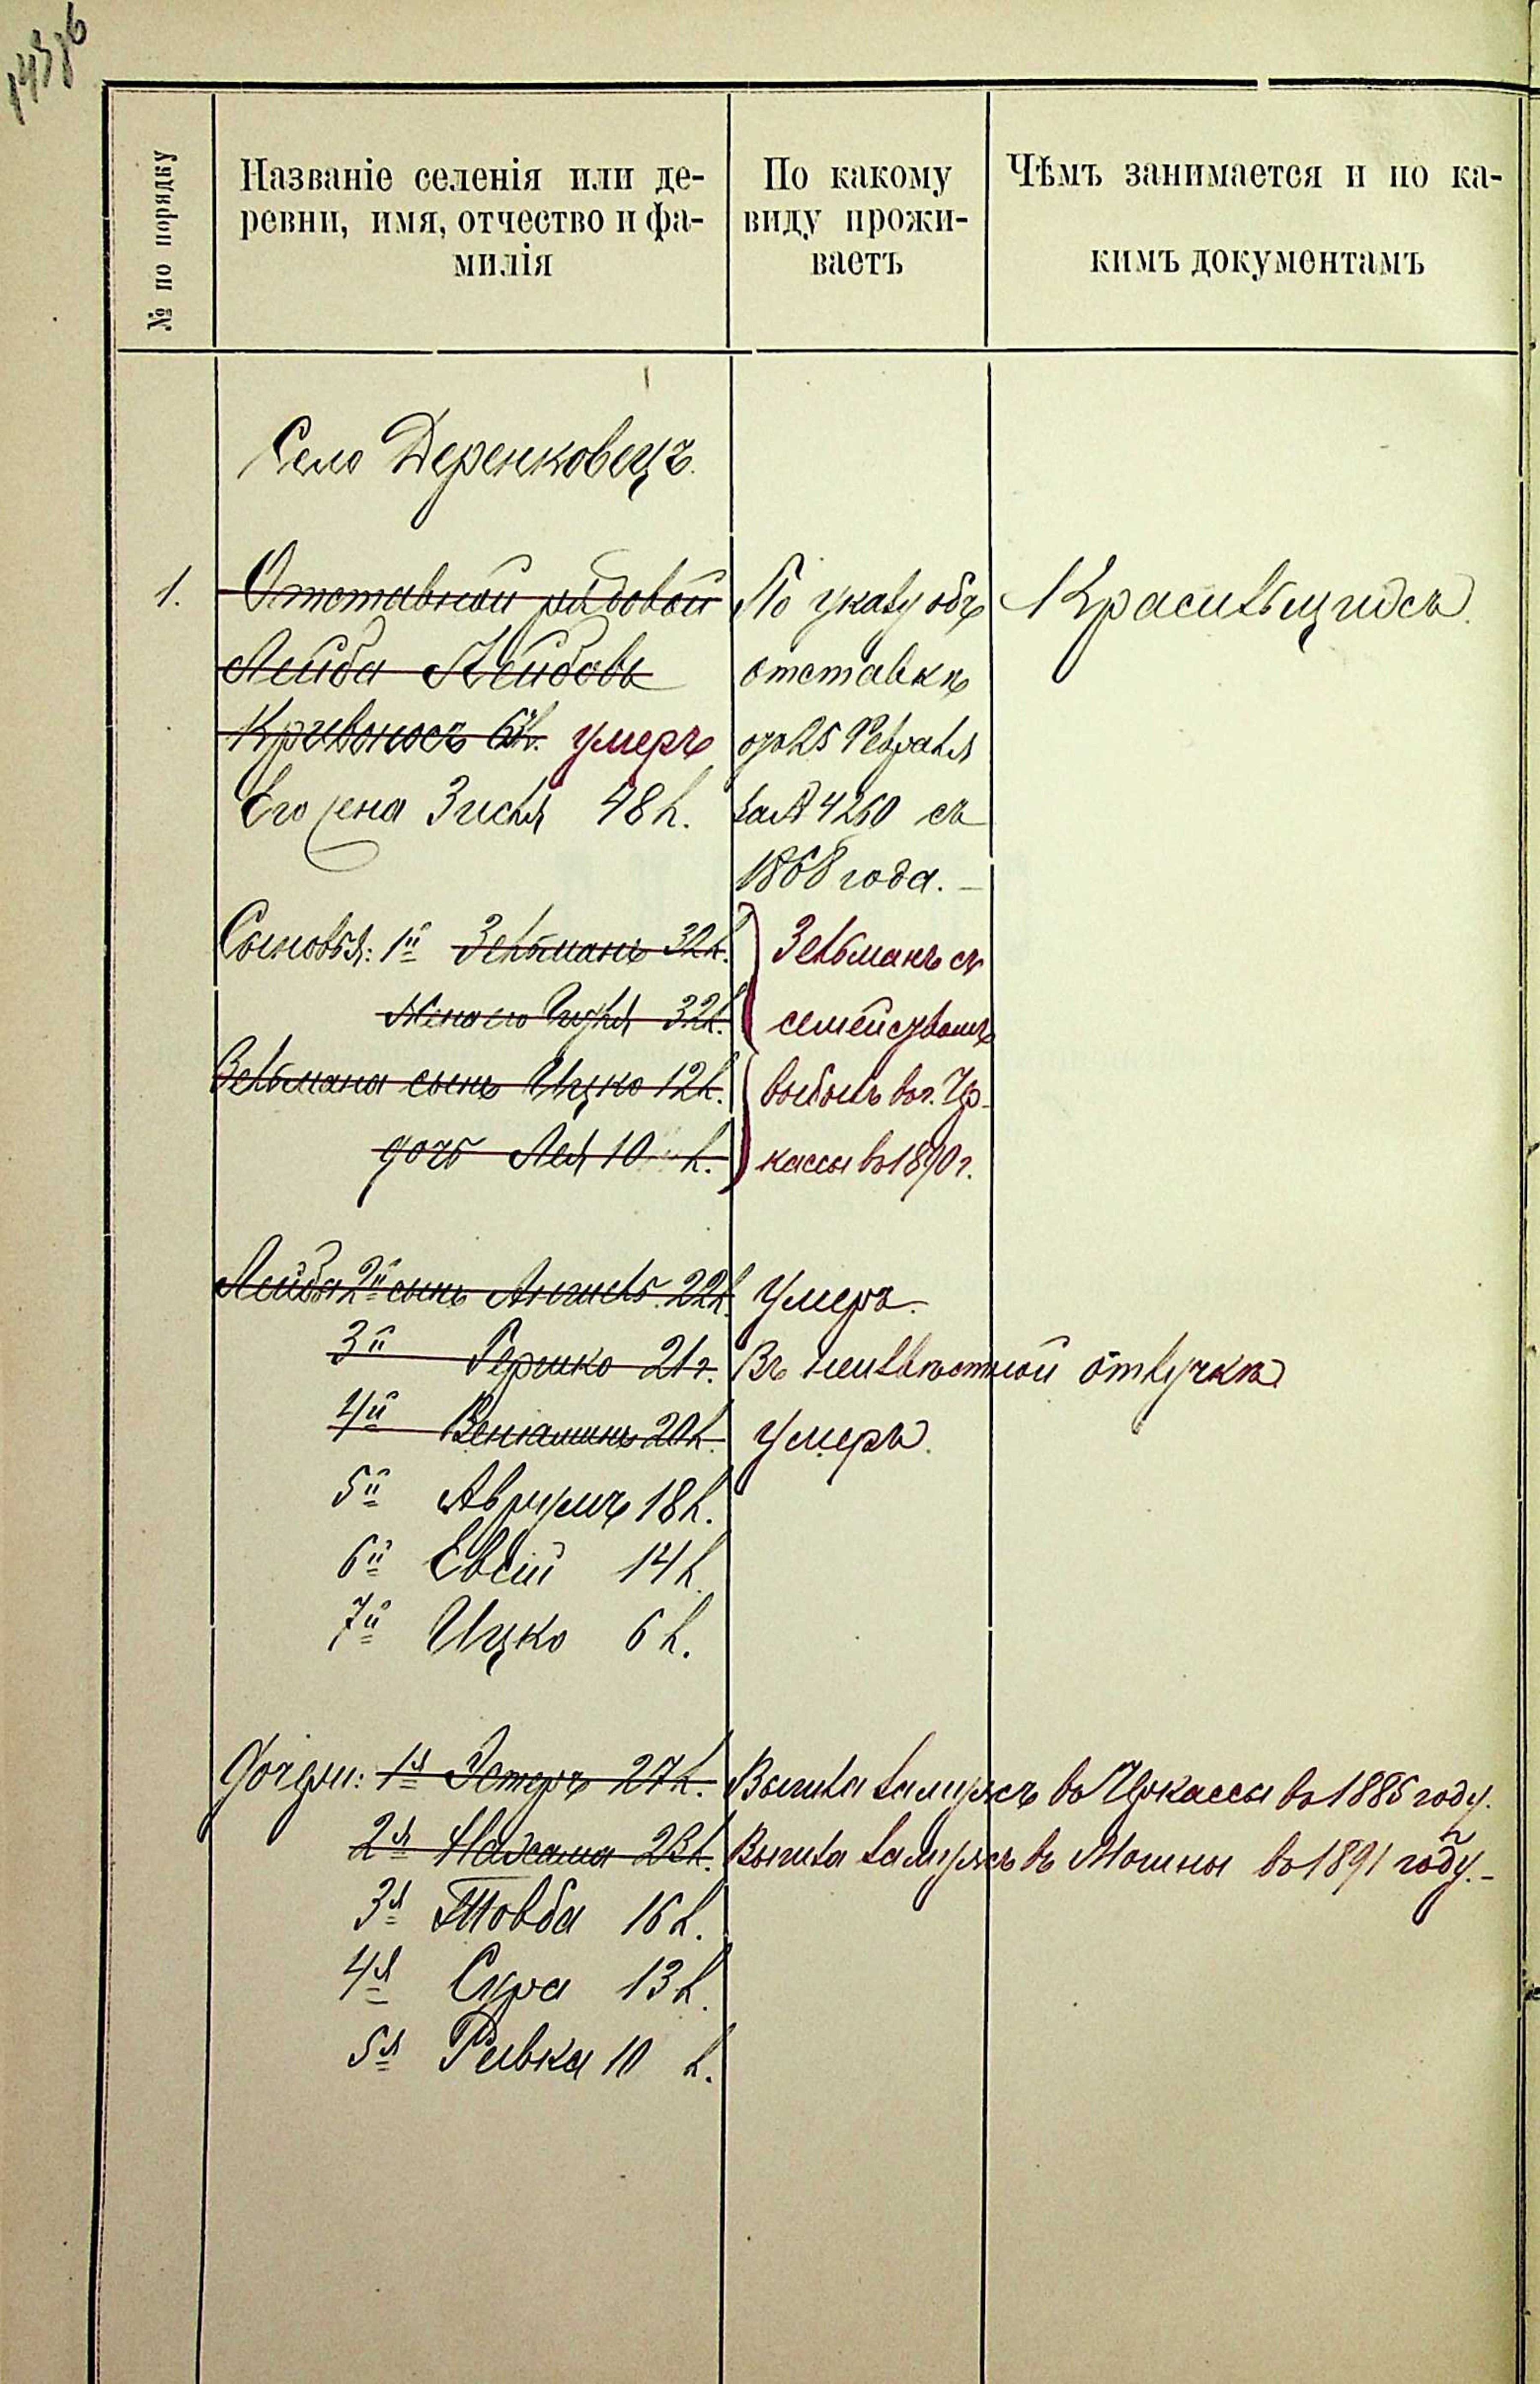 143об
№ по порядку
Названіе селенія или де-
ревни, имя, отчество и фа-
милія
По какому
виду прожи-
ваетъ
Чѣмъ занимается и по ка-
кимъ документамъ
Село Деренковецъ.
1. Отставной рядовой
Лейба Лейбовъ
Кривоносъ умеръ
Его жена Зисля 48 л.
По указу объ
отставкѣ
отъ 25 Февраля
за № 4260 съ
1868 года. —
Красильщикъ.
Сыновья: 1й Зельманъ 32 л.
Жена его 32 л.
Зельмана сынъ Ицко 12 л.
дочь Лея 10 л.
Зельманъ съ
семействомъ
выбылъ въ г. Чер-
кассы въ 1890 г.
Лейба 2й сынъ Аншель 22 л. Умеръ.
3й Гершко 21 г. Въ неизвѣстной отлучкѣ
4й Веніаминъ 20 л. Умеръ.
5й Аврумъ 18 л.
6й Евсій 14 л.
7й Ицко 6 л.
Дочери: 1я Эстеръ 27 л. Вышла замужъ въ Черкассы въ 1885 году.
2я Нахама 23 л. Вышла замужъ въ Мошны въ 1891 году. —
3я Товба 16 л.
4я Сура 13 л.
5я Ривка 10 л.